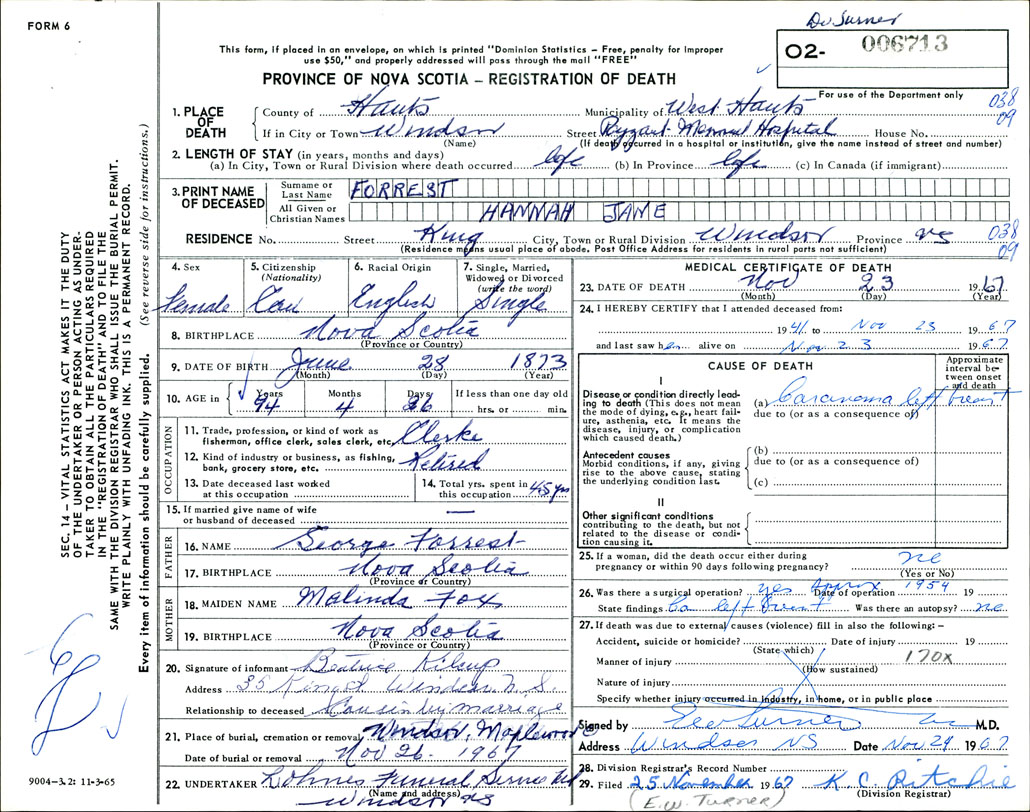 FORM 6
Dr Turner
This form, if placed in an envelope, on which is printed "Dominion Statistics – Free, penalty for improper
use $50," and properly addressed will pass through the mail "FREE"
PROVINCE OF NOVA SCOTIA – REGISTRATION OF DEATH
O2- 006713
For use of the Department only
038
09
SEC. 14 – VITAL STATISTICS ACT MAKES IT THE DUTY
OF THE UNDERTAKER OR PERSON ACTING AS UNDER-
TAKER TO OBTAIN ALL THE PARTICULARS REQUIRED
IN THE "REGISTRATION OF DEATH" AND TO FILE THE
SAME WITH THE DIVISION REGISTRAR WHO SHALL ISSUE THE BURIAL PERMIT.
WRITE PLAINLY WITH UNFADING INK. THIS IS A PERMANENT RECORD.
Every item of information should be carefully supplied. (See reverse side for instructions.)
1. PLACE OF DEATH
County of Hants Municipality of West Hants
If in City or Town Windsor Street Payzant Memorial Hospital House No.
(Name) (If death occurred in a hospital or institution, give the name instead of street and number)
2. LENGTH OF STAY (in years, months and days)
(a) In City, Town or Rural Division where death occurred life (b) In Province life (c) In Canada (if immigrant)
3. PRINT NAME OF DECEASED
Surname or Last Name FORREST
All Given or Christian Names HANNAH JANE
RESIDENCE No. Street King City, Town or Rural Division Windsor Province NS
038
09
(Residence means usual place of abode. Post Office Address for residents in rural parts not sufficient)
4. Sex Female
5. Citizenship (Nationality) Can
6. Racial Origin English
7. Single, Married, Widowed or Divorced (write the word) Single
8. BIRTHPLACE Nova Scotia
(Province or Country)
9. DATE OF BIRTH June 28 1873
(Month) (Day) (Year)
10. AGE in Years 94 Months 4 Days 26 If less than one day old hrs. or min.
OCCUPATION
11. Trade, profession, or kind of work as fisherman, office clerk, sales clerk, etc. Clerke
12. Kind of industry or business, as fishing, bank, grocery store, etc. Retired
13. Date deceased last worked at this occupation
14. Total yrs. spent in this occupation 45 yrs
15. If married give name of wife or husband of deceased —
FATHER
16. NAME George Forrest
17. BIRTHPLACE Nova Scotia
(Province or Country)
MOTHER
18. MAIDEN NAME Malinda Fox
19. BIRTHPLACE Nova Scotia
(Province or Country)
20. Signature of informant Beatrice
Address 35 King St Windsor N.S.
Relationship to deceased Cousin by marriage
21. Place of burial, cremation or removal Windsor, Maplewood
Date of burial or removal Nov 26. 1967
22. UNDERTAKER Funeral Service Ltd
(Name and address) Windsor NS
9004-3.2: 11-3-65
MEDICAL CERTIFICATE OF DEATH
23. DATE OF DEATH Nov 23 1967
(Month) (Day) (Year)
24. I HEREBY CERTIFY that I attended deceased from:
1941 to Nov 23 1967
and last saw her alive on Nov 23 1967
CAUSE OF DEATH
Approximate interval between onset and death
I
Disease or condition directly leading to death (This does not mean the mode of dying, e.g., heart failure, asthenia, etc. It means the disease, injury, or complication which caused death.)
(a) Carcinoma left breast
due to (or as a consequence of)
Antecedent causes
Morbid conditions, if any, giving rise to the above cause, stating the underlying condition last.
(b)
due to (or as a consequence of)
(c)
II
Other significant conditions
contributing to the death, but not related to the disease or condition causing it.
25. If a woman, did the death occur either during pregnancy or within 90 days following pregnancy? no
(Yes or No)
26. Was there a surgical operation? yes Date of operation Approx 1954 19
State findings Ca left breast Was there an autopsy? no
27. If death was due to external causes (violence) fill in also the following: –
Accident, suicide or homicide? Date of injury 19
(State which)
Manner of injury 170X
(How sustained)
Nature of injury
Specify whether injury occurred in industry, in home, or in public place
Signed by Geo Turner M.D.
Address Windsor NS Date Nov 24 1967
28. Division Registrar's Record Number
29. Filed 25 November 1967 K. C. Ritchie
(E.W. TURNER) (Division Registrar)